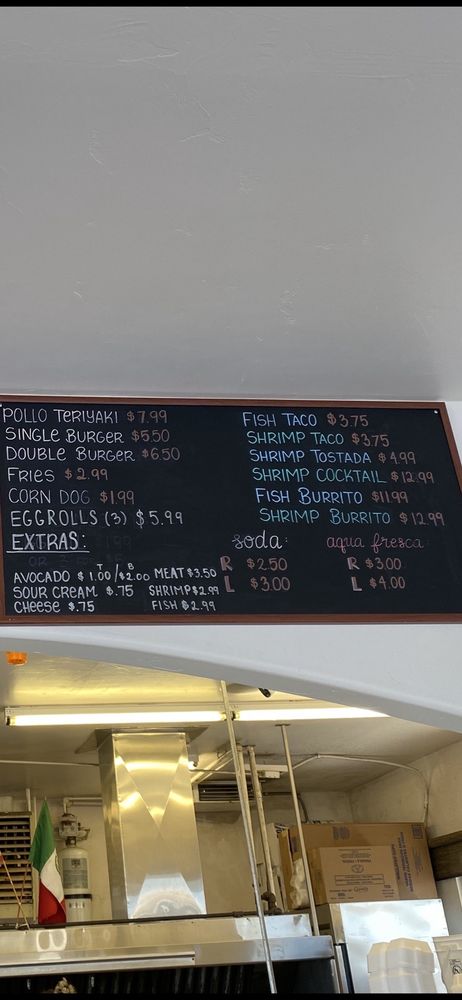 POLLO TERIYAKI $7.99
SINGLE BURGER $5.50
DOUBLE BURGER $6.50
FRIES $2.99
CORN DOG $1.99
EGGROLLS (3) $5.99
EXTRAS:
T B
AVOCADO $1.00/$2.00 MEAT $3.50
SOUR CREAM $.75 SHRIMP $2.99
CHEESE $.75 FISH $2.99
FISH TACO $3.75
SHRIMP TACO $3.75
SHRIMP TOSTADA $4.99
SHRIMP COCKTAIL $12.99
FISH BURRITO $11.99
SHRIMP BURRITO $12.99
soda:
R $2.50
L $3.00
agua fresca:
R $3.00
L $4.00